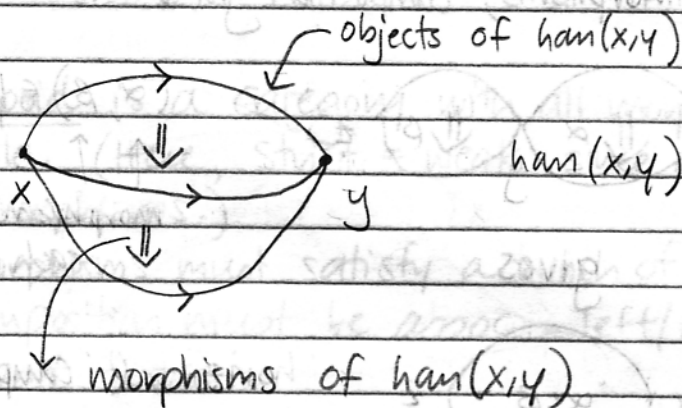 objects of hom(x,y)
hom(x,y)
x
y
morphisms of hom(x,y)